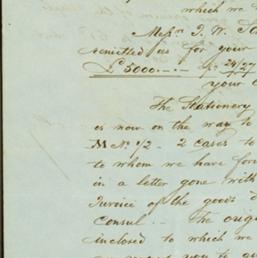 which we
Messrs J. W. 
remitted us for your
£5000.-.- 24/27
your
The Stationery
is now on the way to
M No 1/2 - 2 cases to
to whom we have for
in a letter gone with
Invoice of the goods
Consul. - The orig
inclosed to which we